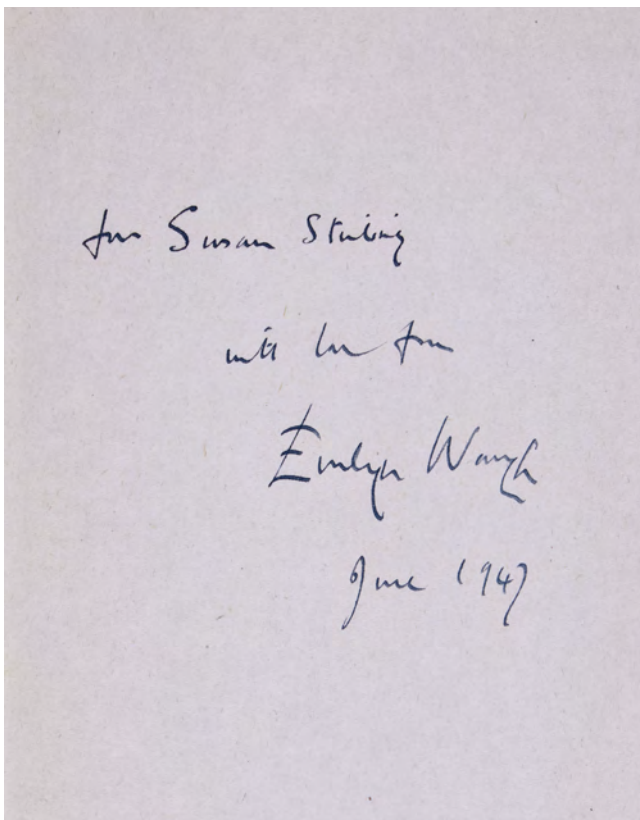 for Susan Stirling
with love from
Evelyn Waugh
June 1947